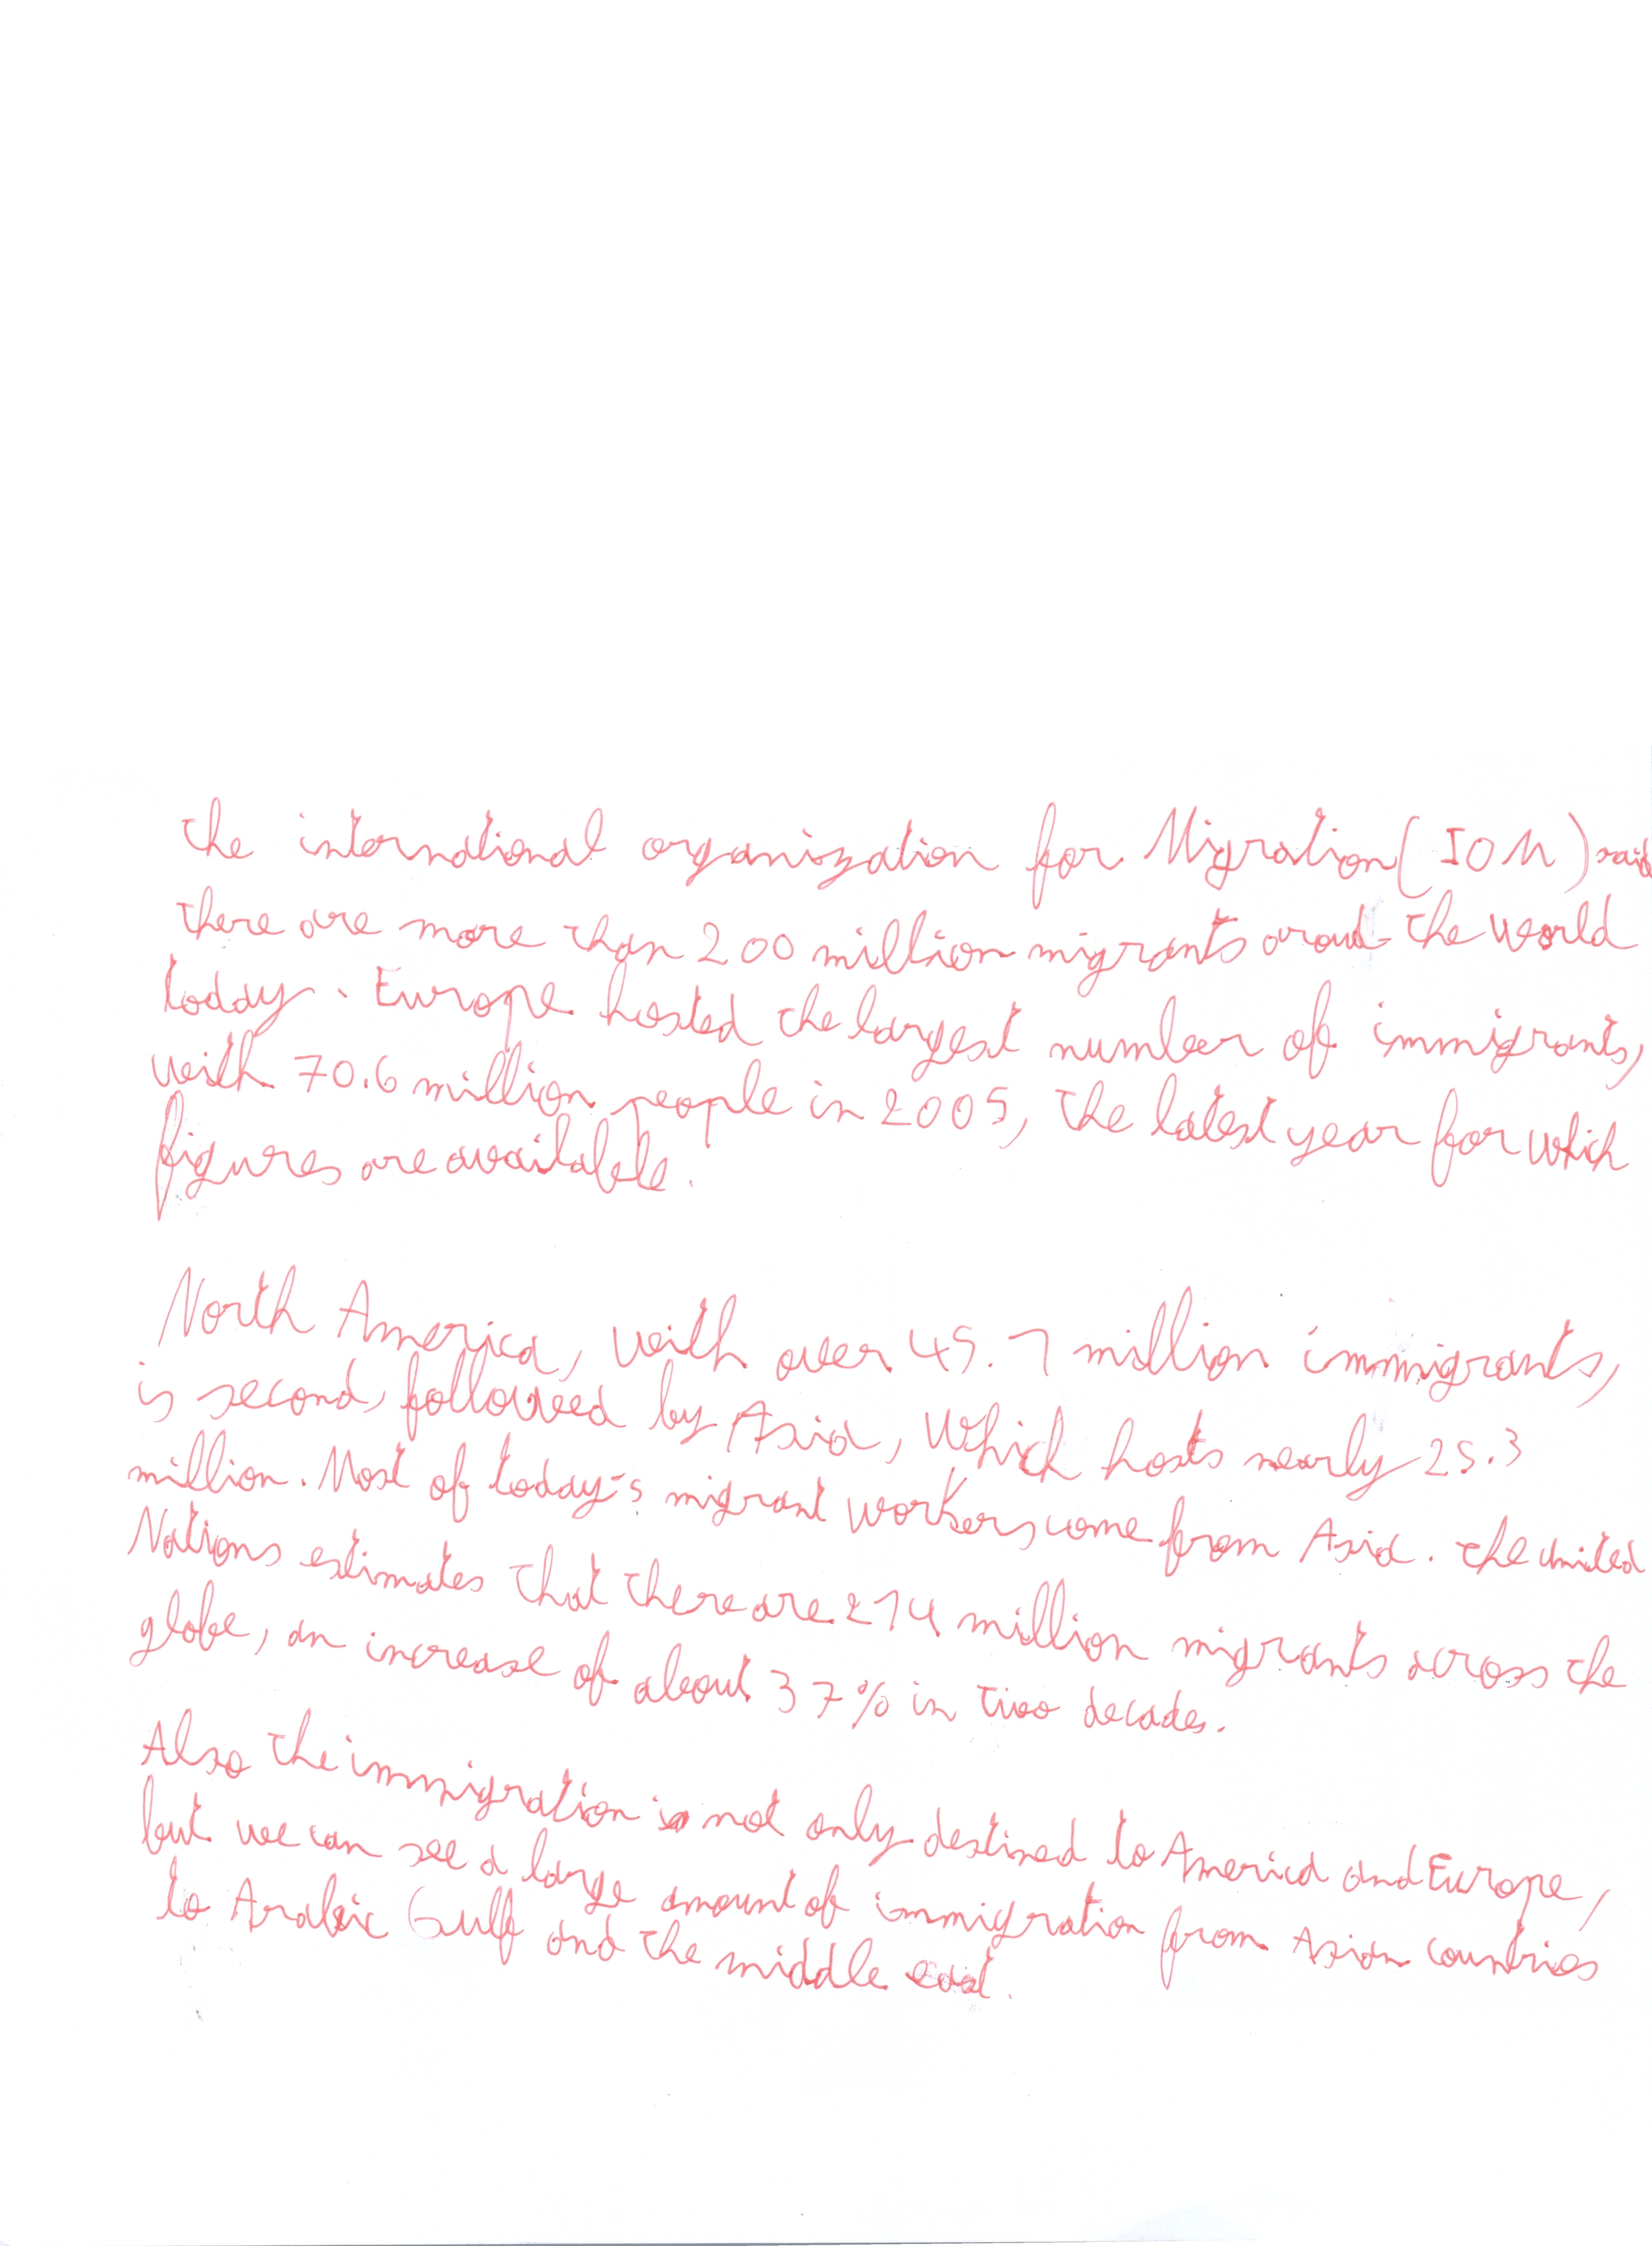 the international organization for Migration (IOM) said
there are more than 200 million migrants aroud the world
today. Europe hosted the largest number of immigrants,
with 70.6 million people in 2005, the latest year for which
figures are available.
North America, with over 45.1 million immigrants,
is second, followed by Asia, which hosts nearly 25.3
million. Most of today's migrant workers come from Asia. the united
Nations estimates that there are 214 million migrants across the
globe, an increase of about 37% in two decades.
Also the immigration is not only destined to America and Europe,
but we can see a large amount of immigration from Asian countries
to Arabic Gulf and the middle east.